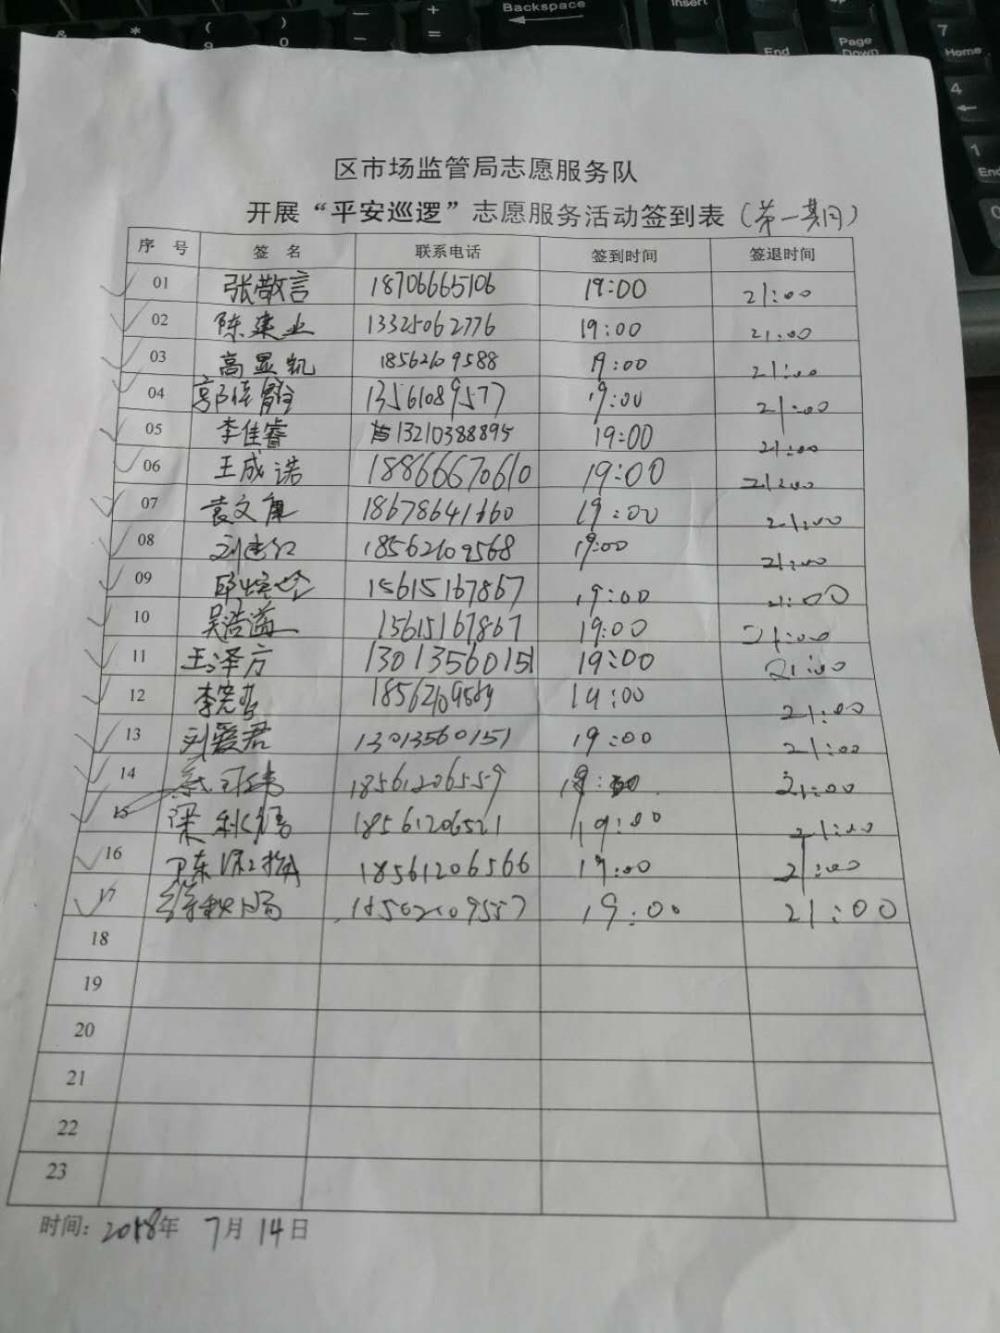 Backspace
Insert
End
Page Down
7 Home
4
1 End
区市场监管局志愿服务队
开展“平安巡逻”志愿服务活动签到表（第一期）
序 号 签 名 联系电话 签到时间 签退时间
01 张敬言 18706665106 19:00 21:00
02 陈建业 13325062776 19:00 21:00
03 高显凯 18562109588 19:00 21:00
04 13561089577 19:00 21:00
05 李佳睿 13210388895 19:00 21:00
06 王成诺 18866670610 19:00 21:00
07 袁文康 18678641660 19:00 21:00
08 18562109568 19:00 21:00
09 15615167867 19:00 21:00
10 吴浩 15615167867 19:00 21:00
11 王泽方 13013560151 19:00 21:00
12 李 19:00 21:00
13 刘爱君 13013560151 19:00 21:00
14 18561206559 21:00
15 梁 18561206521 19:00 21:00
16 18561206566 19:00 21:00
17 19:00 21:00
18
19
20
21
22
23
时间：2018年 7月14日